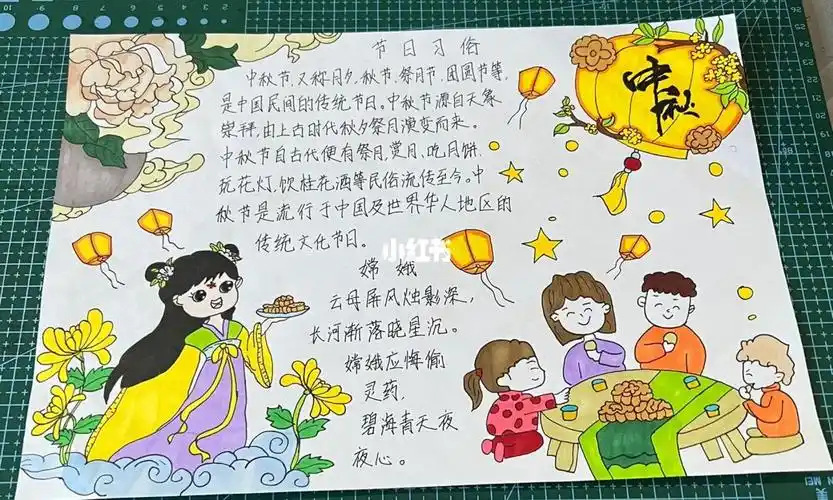 节日习俗
中秋节，又称月夕、秋节、祭月节、团圆节等，
是中国民间的传统节日。中秋节源自天象
崇拜，由上古时代秋夕祭月演变而来。
中秋节自古代便有祭月，赏月，吃月饼，
玩花灯，饮桂花酒等民俗流传至今。中
秋节是流行于中国及世界华人地区的
传统文化节日。
中秋
小红书
嫦娥
云母屏风烛影深，
长河渐落晓星沉。
嫦娥应悔偷
灵药，
碧海青天夜
夜心。